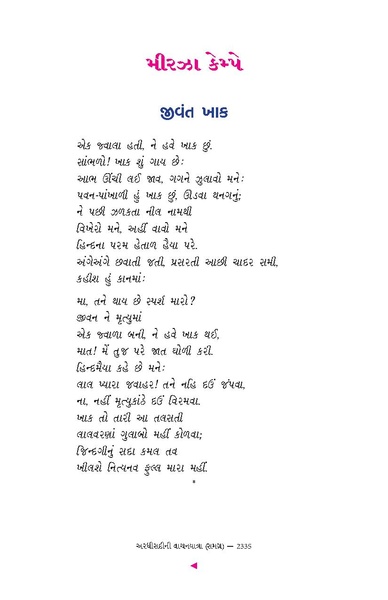 મીરઝા કેમ્પે
જીવંત ખાક
એક જ્વાલા હતી, ને હવે ખાક છું.
સાંભળો! ખાક શું ગાય છે:
આભ ઊંચી લઈ જાવ, ગગને ઝુલાવો મને:
પવન-પાંખાળી હું ખાક છું, ઊડવા થનગનું;
ને પછી ઝળકતા નીલ નામથી
વિખેરો મને, અહીં વાવો મને
હિન્દના પરમ હેતાળ હૈયા પરે.
અંગેઅંગે છવાતી જતી, પ્રસરતી આછી ચાદર સમી,
કહીશ હું કાનમાં:
મા, તને થાય છે સ્પર્શ મારો?
જીવન ને મૃત્યુમાં
એક જ્વાળા બની, ને હવે ખાક થઈ,
માત! મેં તુજ પરે જાત ઘોળી કરી.
હિન્દમૈયા કહે છે મને:
લાલ પ્યારા જવાહર! તને નહિ દઉં જંપવા,
ના, નહીં મૃત્યુકાંઠે દઉં વિરમવા.
ખાક તો તારી આ તલસતી
લાલવરણાં ગુલાબો મહીં કોળવા;
જિન્દગીનું સદા કમલ તવ
ખીલશે નિત્યનવ ફુલ્લ મારા મહીં.
*
અરધીસદીની વાચનયાત્રા (સમગ્ર) — 2335